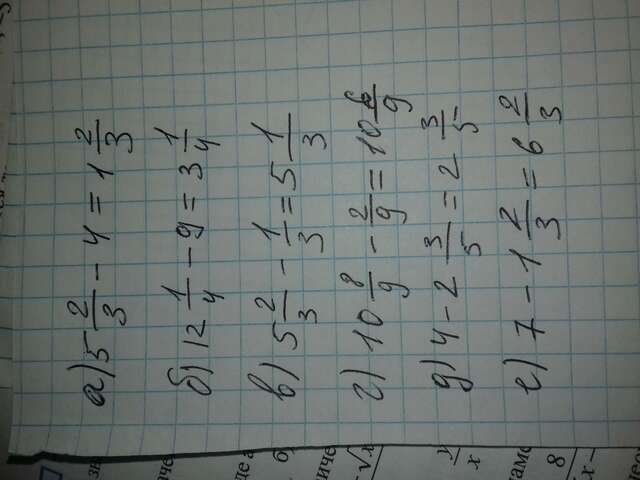 а) 5 2/3 - 4 = 1 2/3
б) 12 1/4 - 9 = 3 1/4
в) 5 2/3 - 1/3 = 5 1/3
г) 10 8/9 - 2/9 = 10 6/9
д) 4 - 2 3/5 = 2 3/5
е) 7 - 1 2/3 = 6 2/3